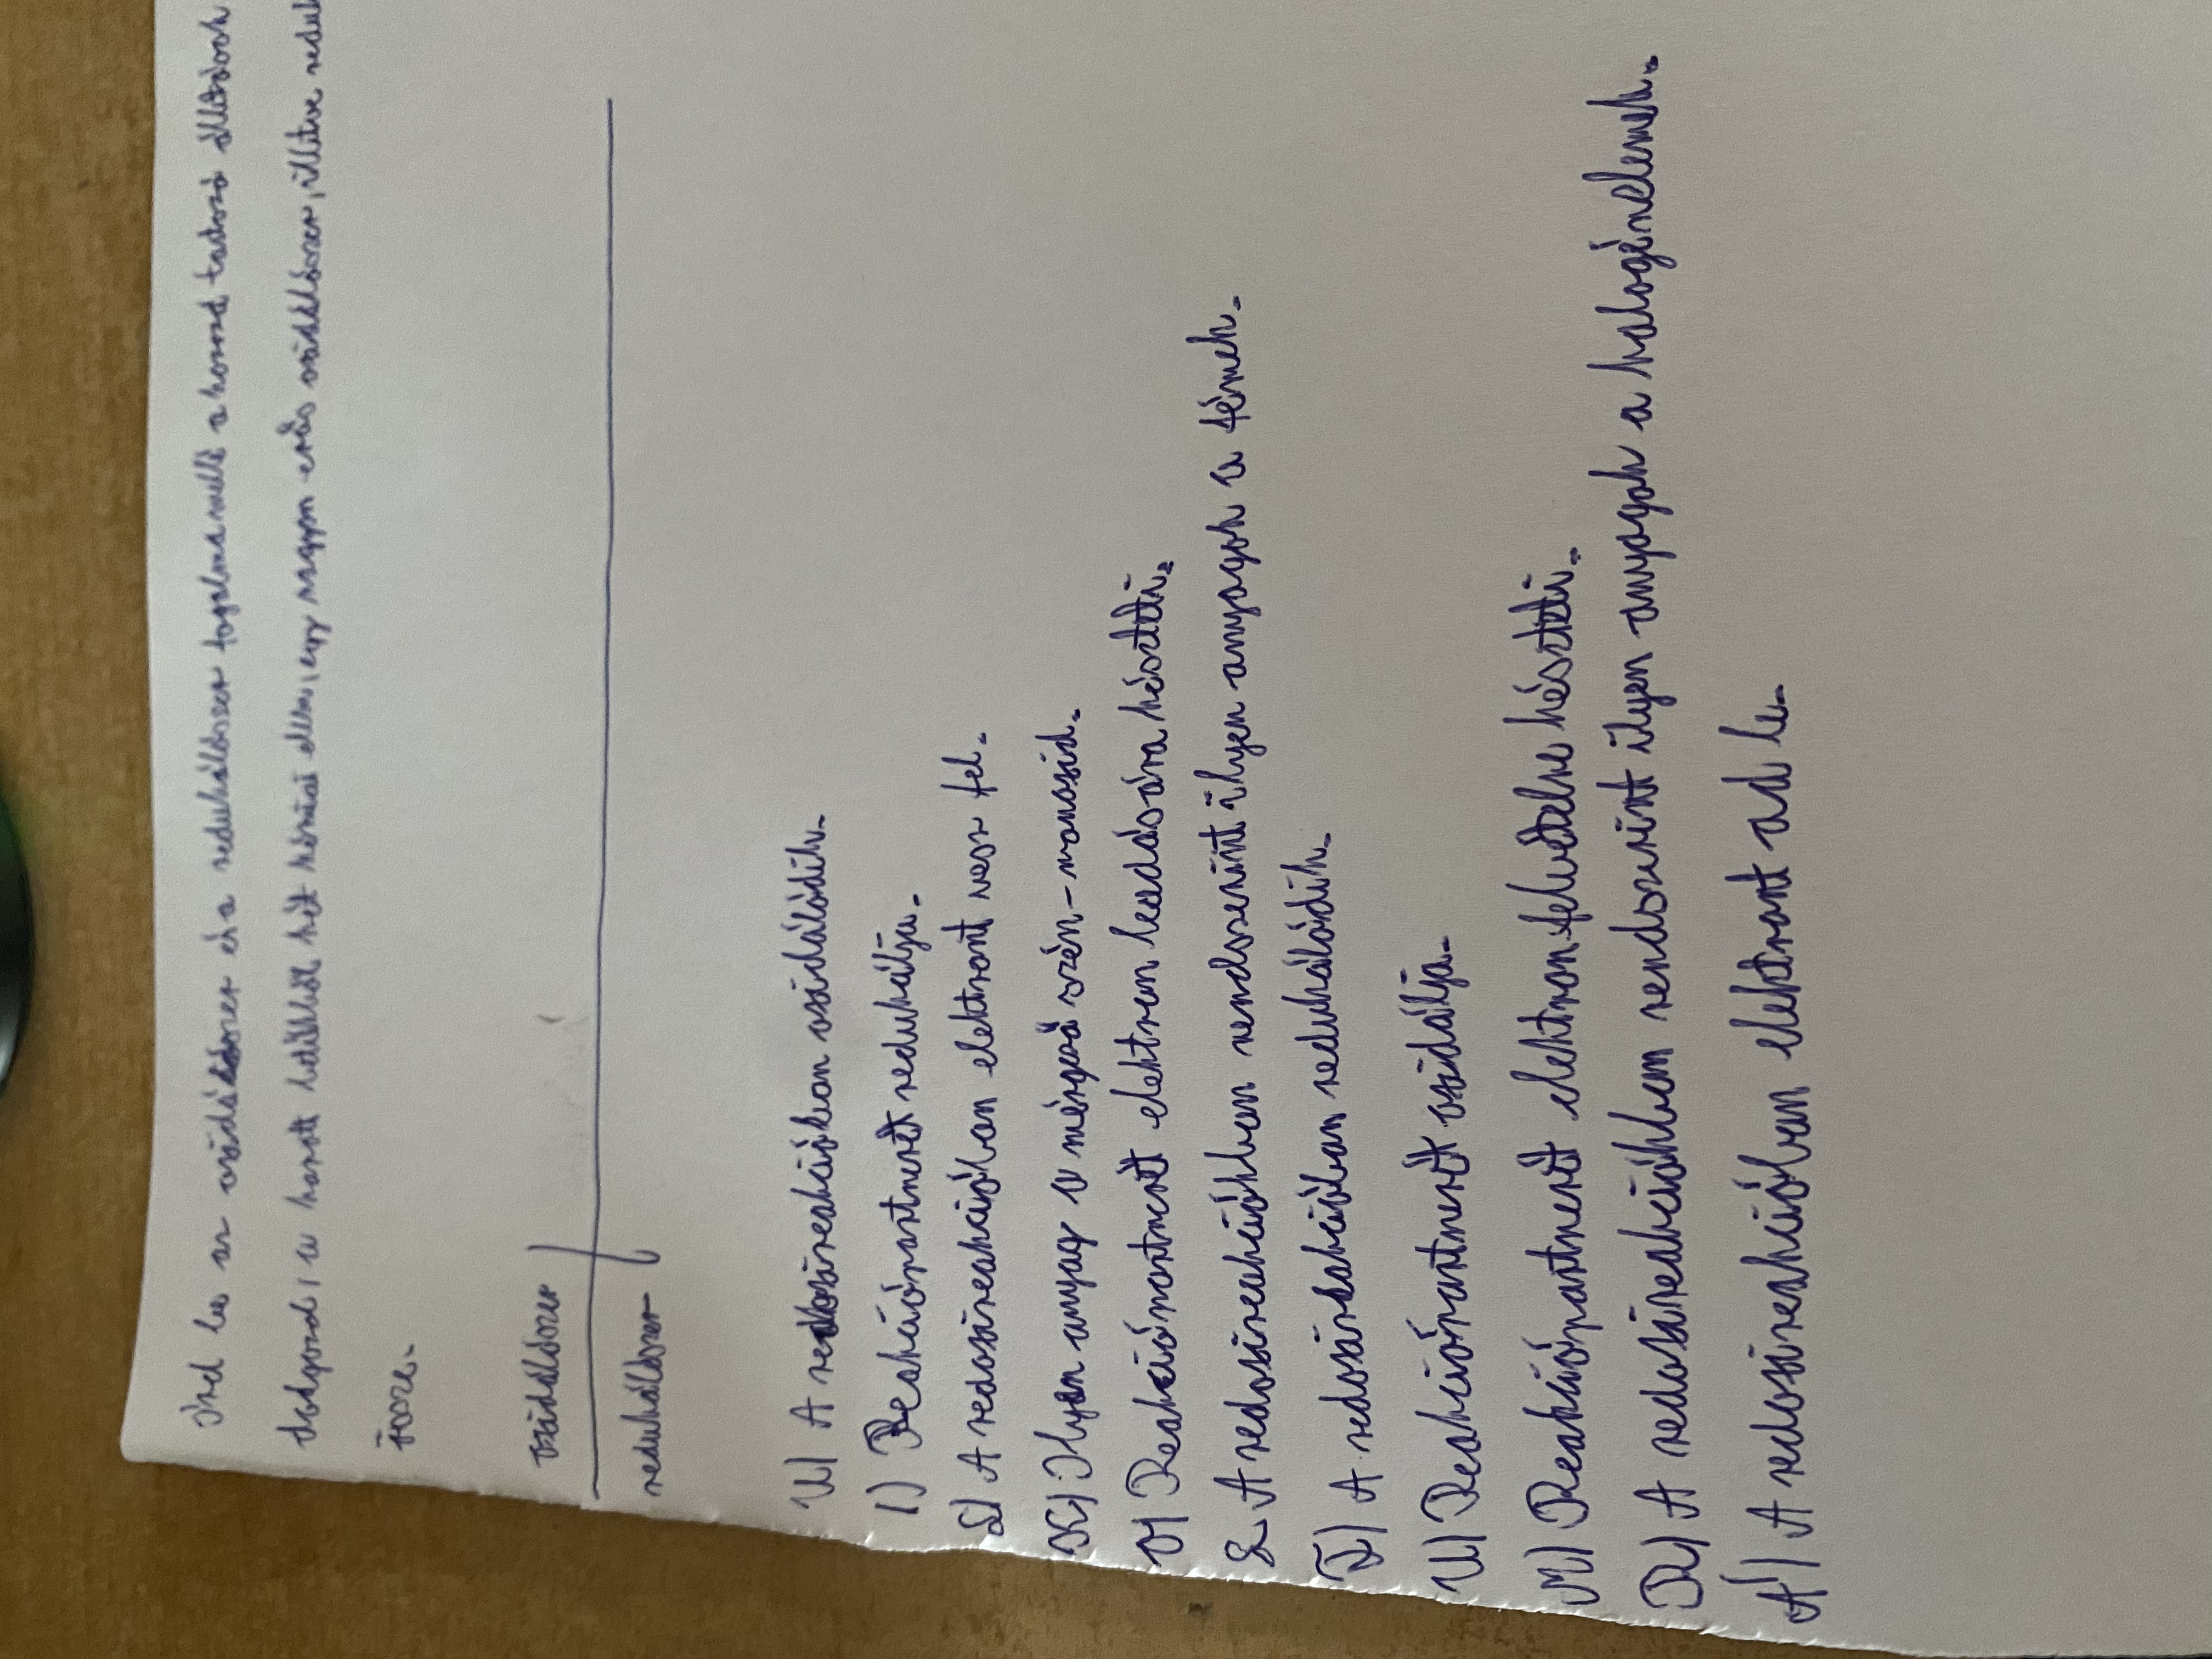 Írd le az oxidálószer és a redukálószer fogalma mellé a hozzá tartozó állítások
dolgozd, a kapott betűkből két kémiai elem, egy nagyon erős oxidálószer, illetve redu
össze.
oxidálószer
redukálószer
U) A redoxireakcióban oxidálódik.
I) Reakciópartnerét redukálja.
L) A redoxireakcióban elektront vesz fel.
K) Ilyen anyag a mérgező szén-monoxid.
O) Reakciópartnerét elektron leadására készteti.
L A redoxireakciókban rendszerint ilyen anyagok a fémek.
F) A redoxireakcióban redukálódik.
U) Reakciópartnerét oxidálja.
M) Reakciópartnerét elektronfelvételre készteti.
R) A redoxireakciókban rendszerint ilyen anyagok a halogénelemek.
Á) A redoxireakcióban elektront ad le.